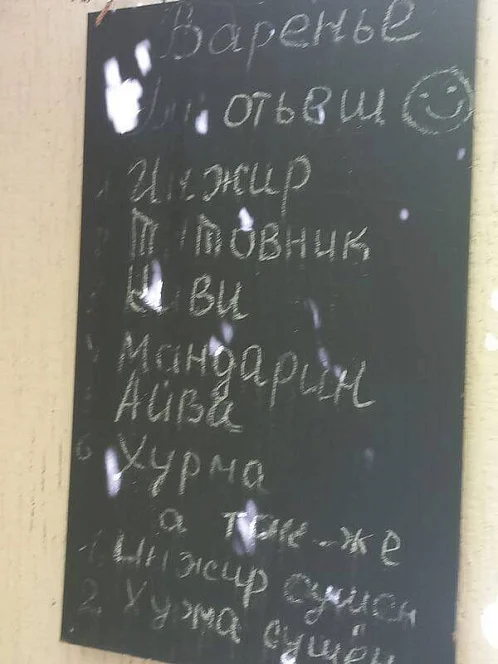 Варенье
отьвш
1 Инжир
2 Тутовник
3 Киви
4 Мандарин
5 Айва
6 Хурма
а так-же
1. Инжир сушен
2 Хурма сушён